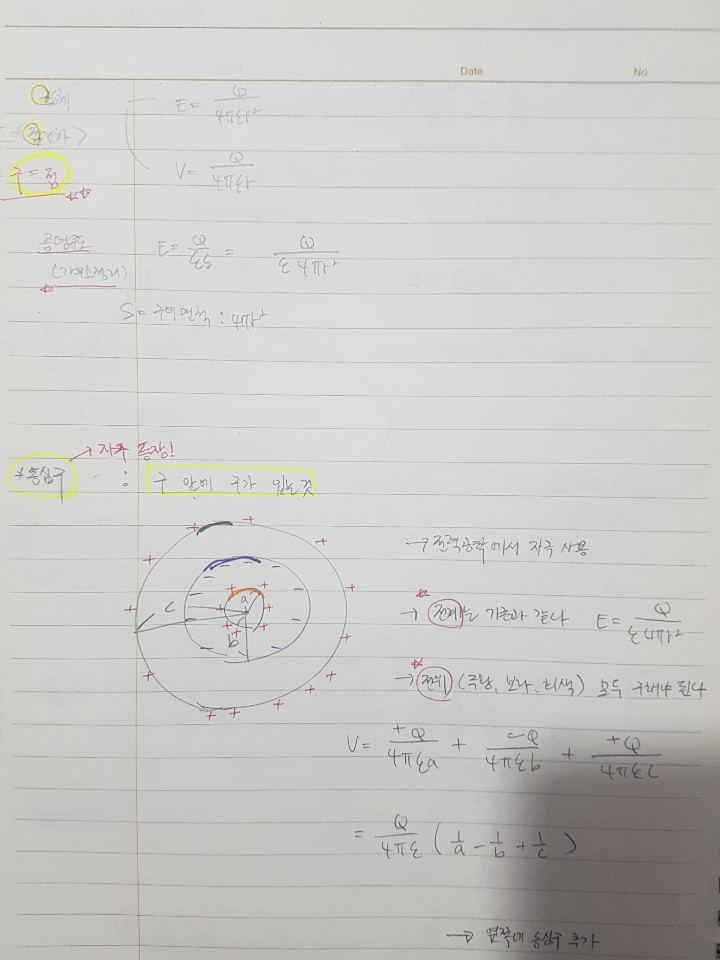 Date No
E = Q / 4πεr²
V = Q / 4πεr
구 = 점
E = Q / εS = Q / ε4πr²
(가우스정리)
S = 구의면적 : 4πr²
→ 자주 등장!
*동심구 : 구 안에 구가 있는것
→ 전력공학에서 자주 사용
→ 전계는 기존과 같다 E = Q / ε4πr²
→ 전위 (주황, 보라, 회색) 모두 구해야 된다
a
b
c
V = +Q / 4πεa + -Q / 4πεb + +Q / 4πεc
= Q / 4πε (1/a - 1/b + 1/c)
→ 뒤쪽에 동심구 추가